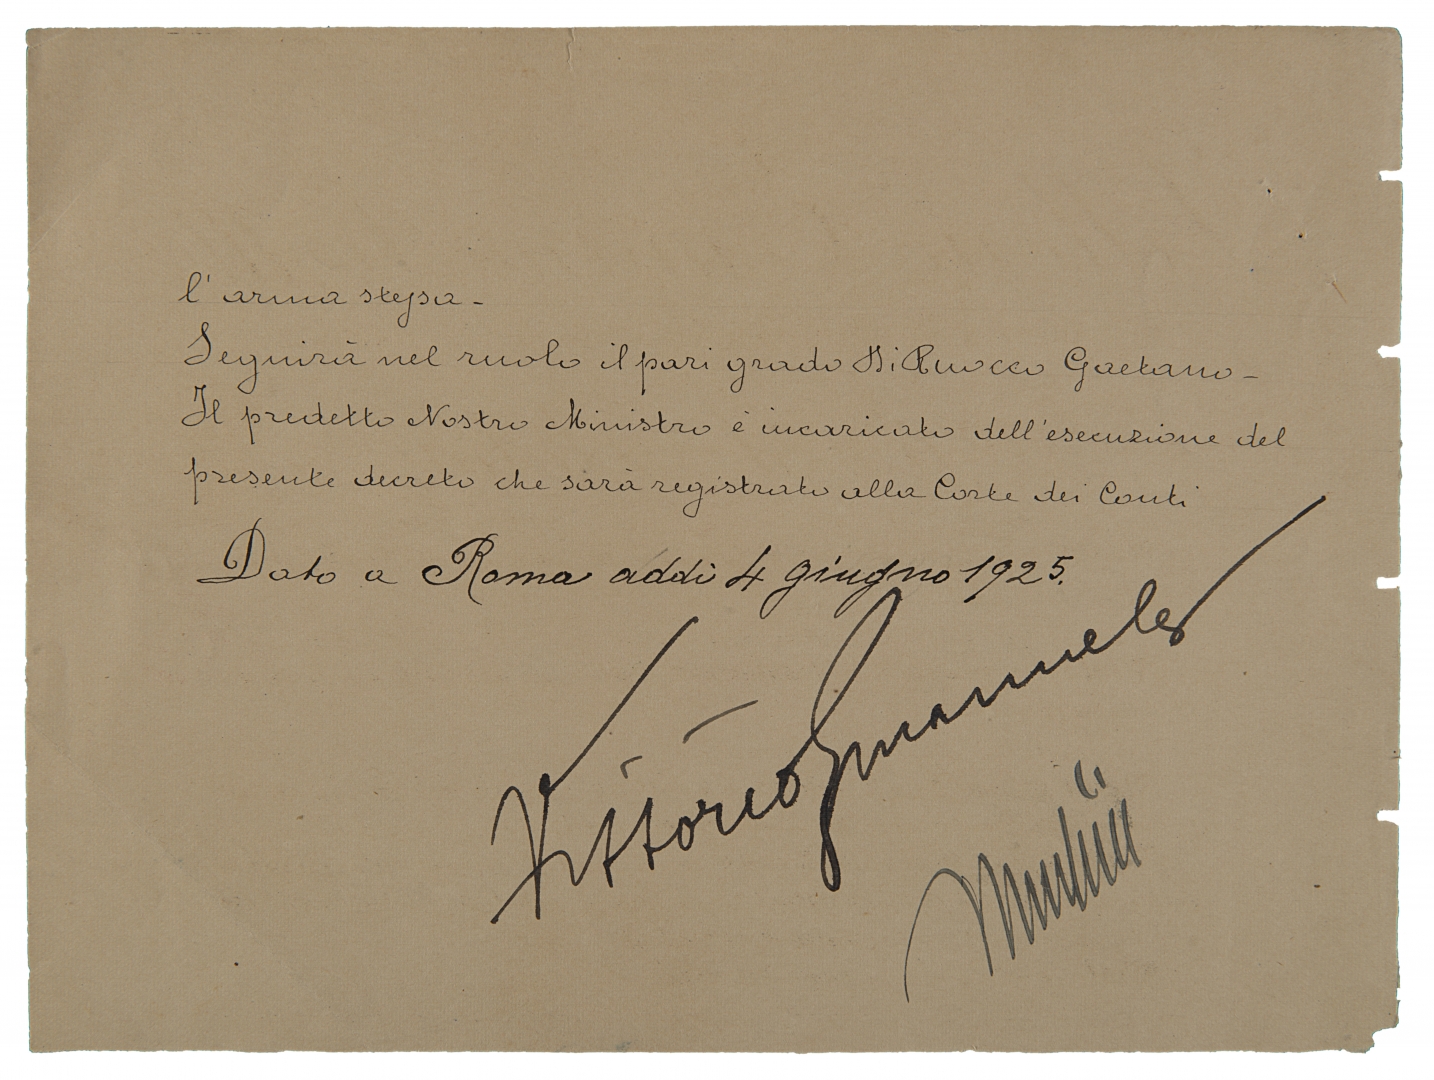 l'arma stessa -
Seguirà nel ruolo il pari grado Di Ruocco Gaetano -
Il predetto Nostro Ministro è incaricato dell'esecuzione del
presente decreto che sarà registrato alla Corte dei Conti
Dato a Roma addì 4 giugno 1925.
Vittorio Emanuele
Mussolini